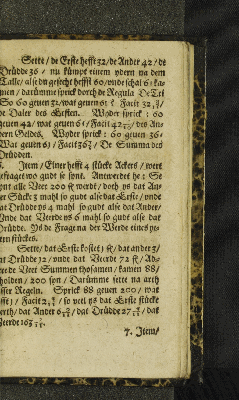 Sette/ de Erste hefft 32/de Ander 42/ de
Drüdde 36/ nu kümpt einem ydern na dem
Talle/ alse dn gesecht hefft 60/vnde schal 6/ ka-
men/ darümme sprick dorch de Regula De Tri
So 60 geuen 32/wat geuen 6? Facit 32
de Daler des Ersten. Wyder sprick: 60
geuen 42/ wat geuen 6/ Facit 42 des An-
dern Geldes. Wyder sprick: 60 geuen 36/
Wat geuen 6/ Facit 36 De Summa des
Drüdden.
Item/ Einer hefft 4 stücke Ackers/ wert
gefraget wo gudt se synt. Antwerdet he: Se
synt alle Veer 200 fl werdt/ doch ys dat An-
der Stück 3 mahl so gudt alse dat Erste/ vnde
dat Drüdde ys 4 mahl so gudt alse dat Ander.
Vnde dat Veerde ys 6 mahl so gudt alse dat
Drüdde. Ys de Frage na der Werde eines ye-
dern stückes.
Sette/ dat Erste kostet 1 fl/ dat ander 3/
dat Drüdde 12/ vnde dat Veerde 72 fl/ Ad-
dere de Veer Summen thosamen/ kamen 88/
holden/ 200 son/ Darümme sette na arth
Regeln. Sprick 88 geuen 200/ wat
Facit 2 / so veel ys dat Erste stücke
werth/ dat Ander 6 / dat Drüdde 27 / dat
Veerde 163
7. Item/